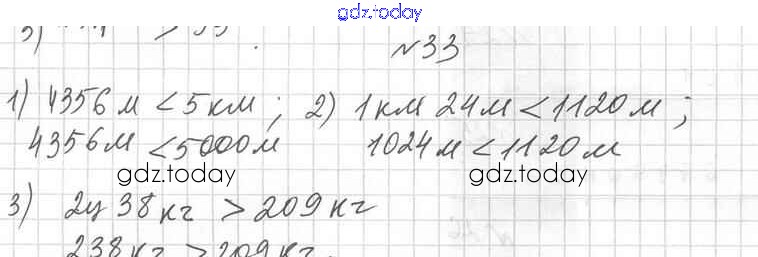 gdz.today
3)
№33
1) 4356 м < 5 км; 2) 1 км 24 м < 1120 м;
4356 м < 5000 м 1024 м < 1120 м
gdz.today gdz.today
3) 2ц 38 кг > 209 кг
238 кг > 209 кг.